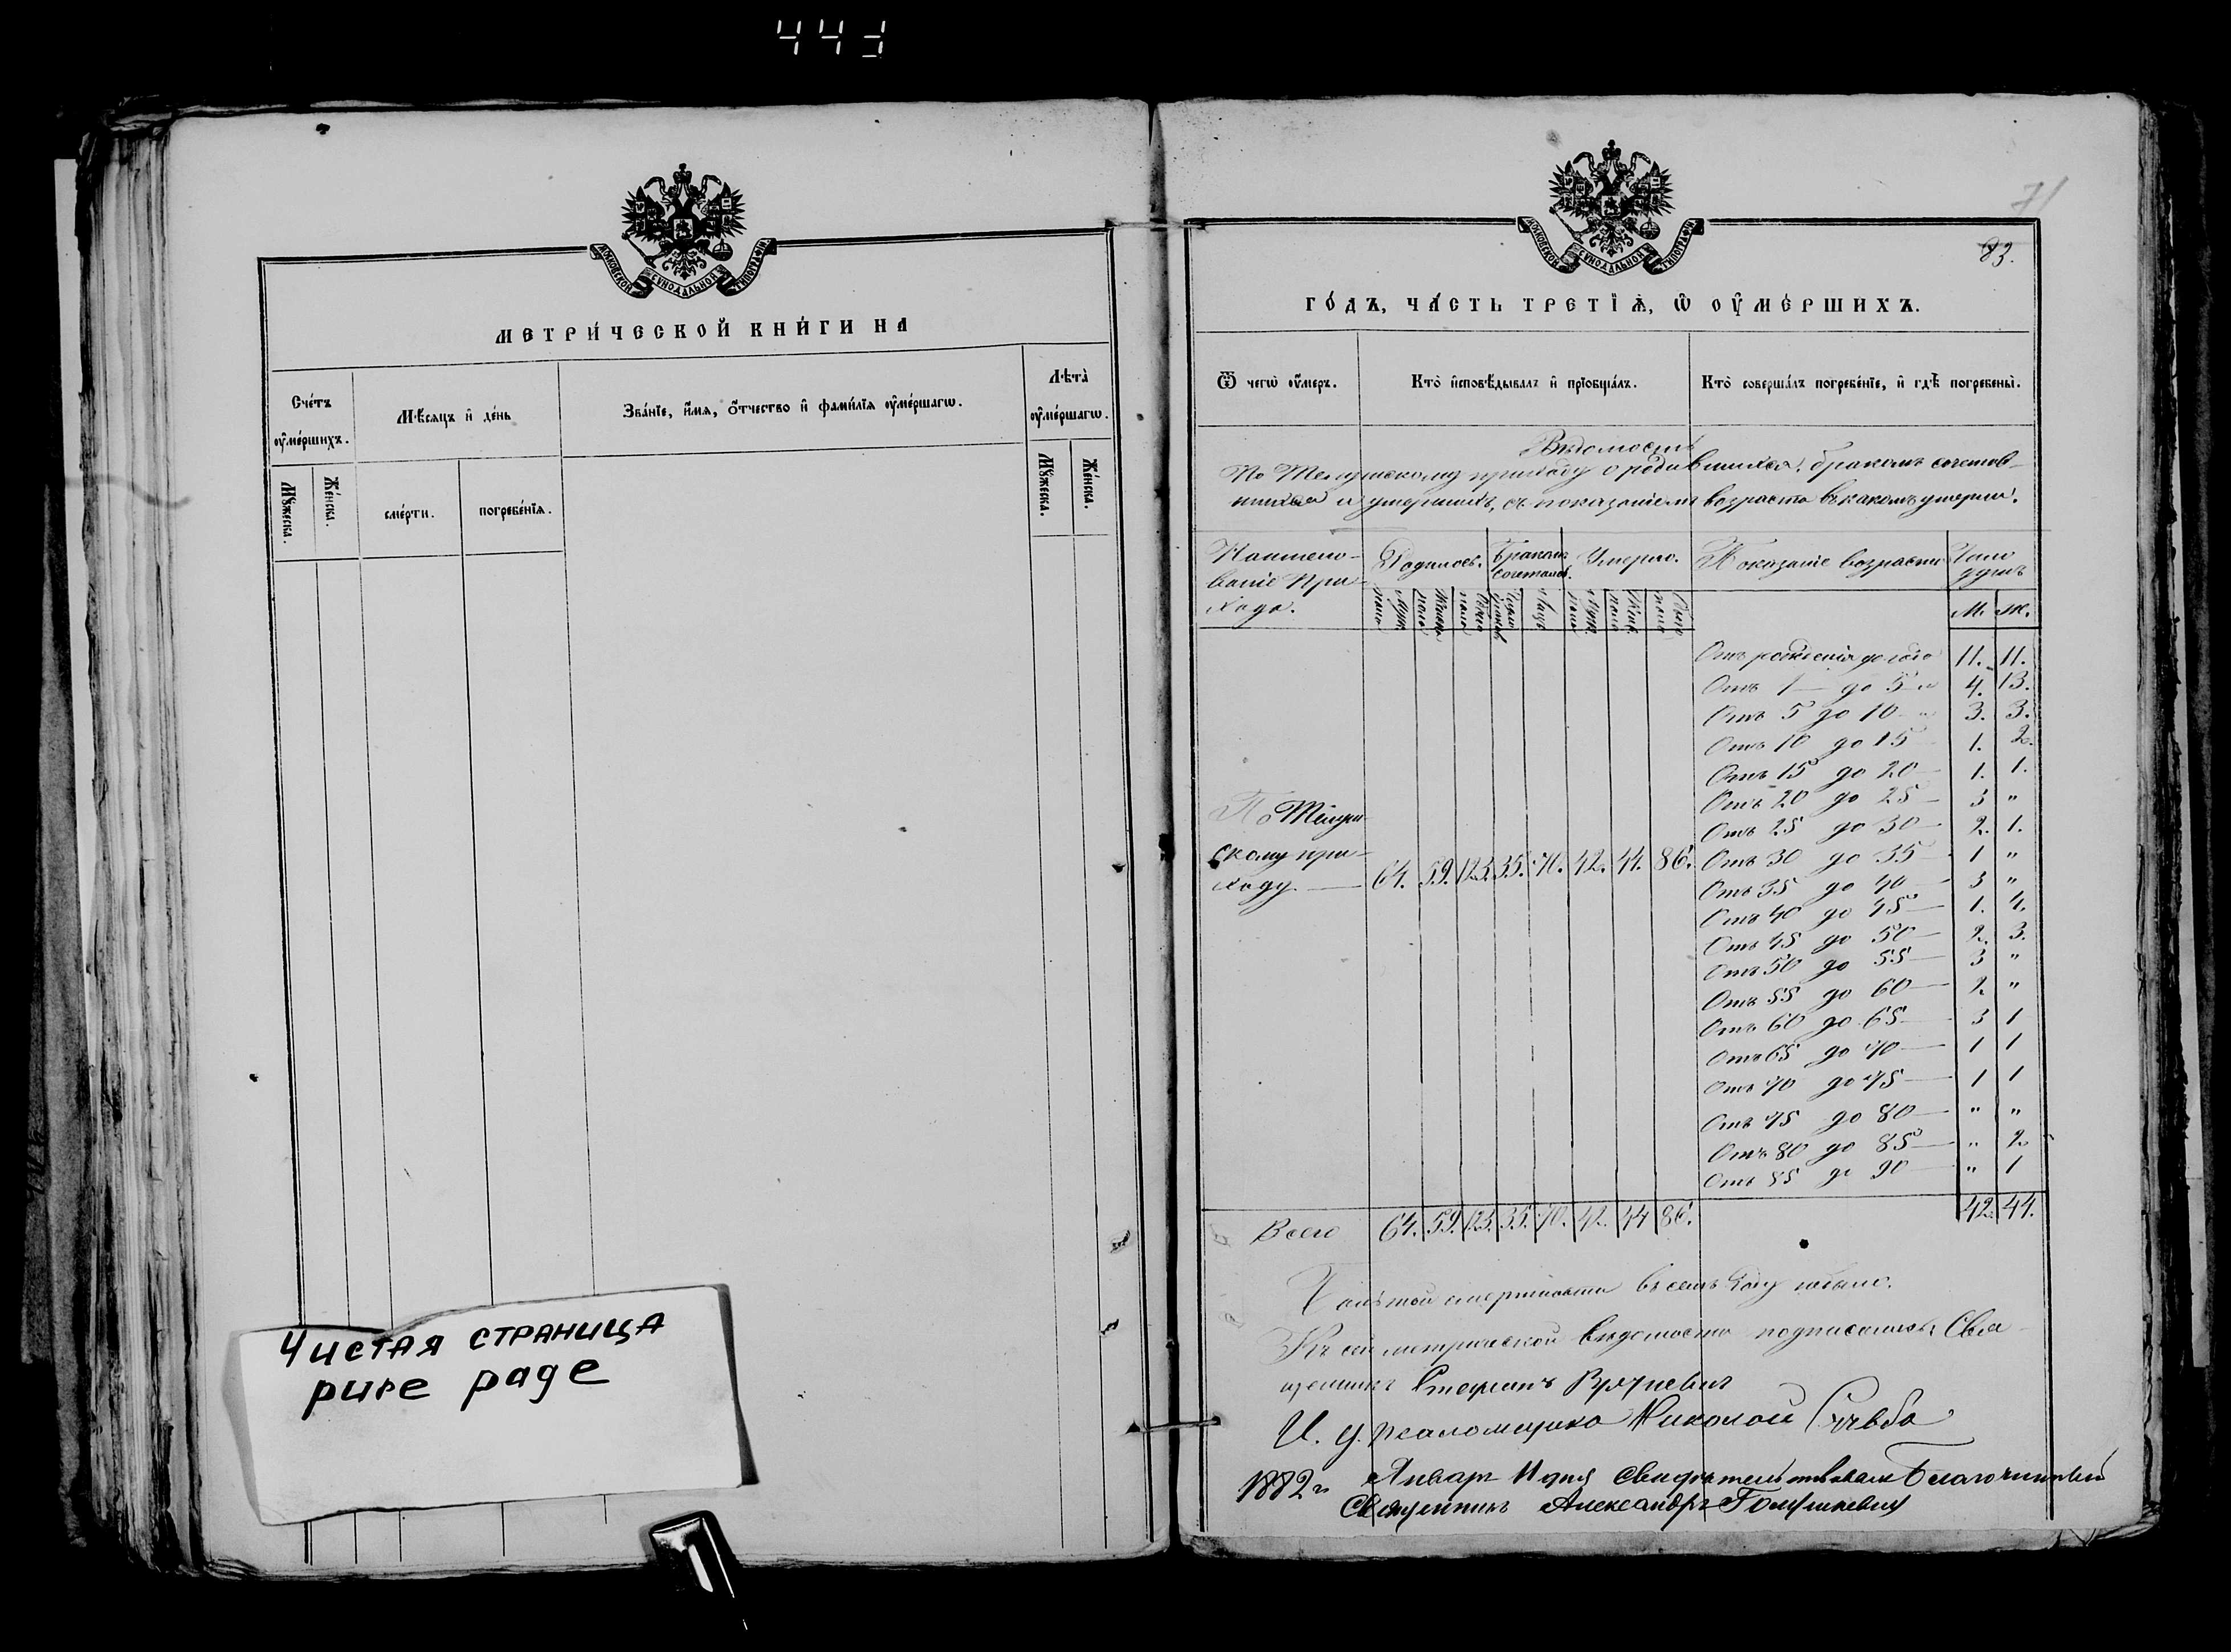 443
МОСКОВСКОЙ СѴНОДАЛЬНОЙ ТИПОГРАФІИ
МЕТРИ́ЧЕСКОЙ КНИ́ГИ НА
Сче́тъ ѹ҆ме́ршихъ.
Мѣ́сяцъ и҆ де́нь
Зва́нїе, и҆́мя, ѻ҆́тчество и҆ фами́лїя ѹ҆ме́ршагѡ.
Лѣ́та ѹ҆ме́ршагѡ.
Мꙋ́жеска.
Же́нска.
сме́рти.
погребе́нїя.
Мꙋ́жеска.
Же́нска.
Чистая страница
pure page
71
83.
МОСКОВСКОЙ СѴНОДАЛЬНОЙ ТИПОГРАФІИ
ГО́ДЪ, ЧА́СТЬ ТРЕТЇѦ, Ѡ ОУ҆МЕ́РШИХЪ.
Ѿ чегѡ̀ ѹ҆́меръ.
Кто̀ и҆сповѣ́дывалъ и҆ прїобща́лъ.
Кто̀ соверша́лъ погребе́нїе, и҆ гдѣ̀ погребены̀.
Вѣдомость
По приходу о родившихся, бракомъ сочетав-
шихся и умершихъ, съ показаніемъ возраста въ какомъ умерли.
Наимено-
ваніе При-
хода.
Родилось.
Бракомъ
сочеталось.
Умерло.
Показаніе возраста
Число
душъ
М. Ж.
Отъ рожденія до года 11. 11.
Отъ 1 — до 5 4. 13.
Отъ 5 до 10 3. 3.
Отъ 10 до 15 1. 2.
Отъ 15 до 20 — 1. 1.
Отъ 20 до 25 — 3 "
Отъ 25 до 30 — 2. 1.
Отъ 30 до 35 — 1 "
Отъ 35 до 40 — 3 "
Отъ 40 до 45 — 1. 4.
Отъ 45 до 50 — 2. 3.
Отъ 50 до 55 — 3 "
Отъ 55 до 60 — 2 "
Отъ 60 до 65 — 3 1
Отъ 65 до 70 — 1 1
Отъ 70 до 75 — 1 1
Отъ 75 до 80 — " "
Отъ 80 до 85 — " 2
Отъ 85 до 90 — " 1
По
скому при-
ходу. — 64. 59. 123. 35. 70. 42. 44. 86.
Всего 64. 59. 123. 35. 70. 42. 44 86. 42. 44.
смертности въ семъ году небыло.
Къ сей метрической вѣдомости подписались: Свя-
щенникъ Стефанъ
И. д. псаломщика Николай
1882 г. Января 11 дня свидѣтельствовалъ Благочинный
Священникъ Александръ